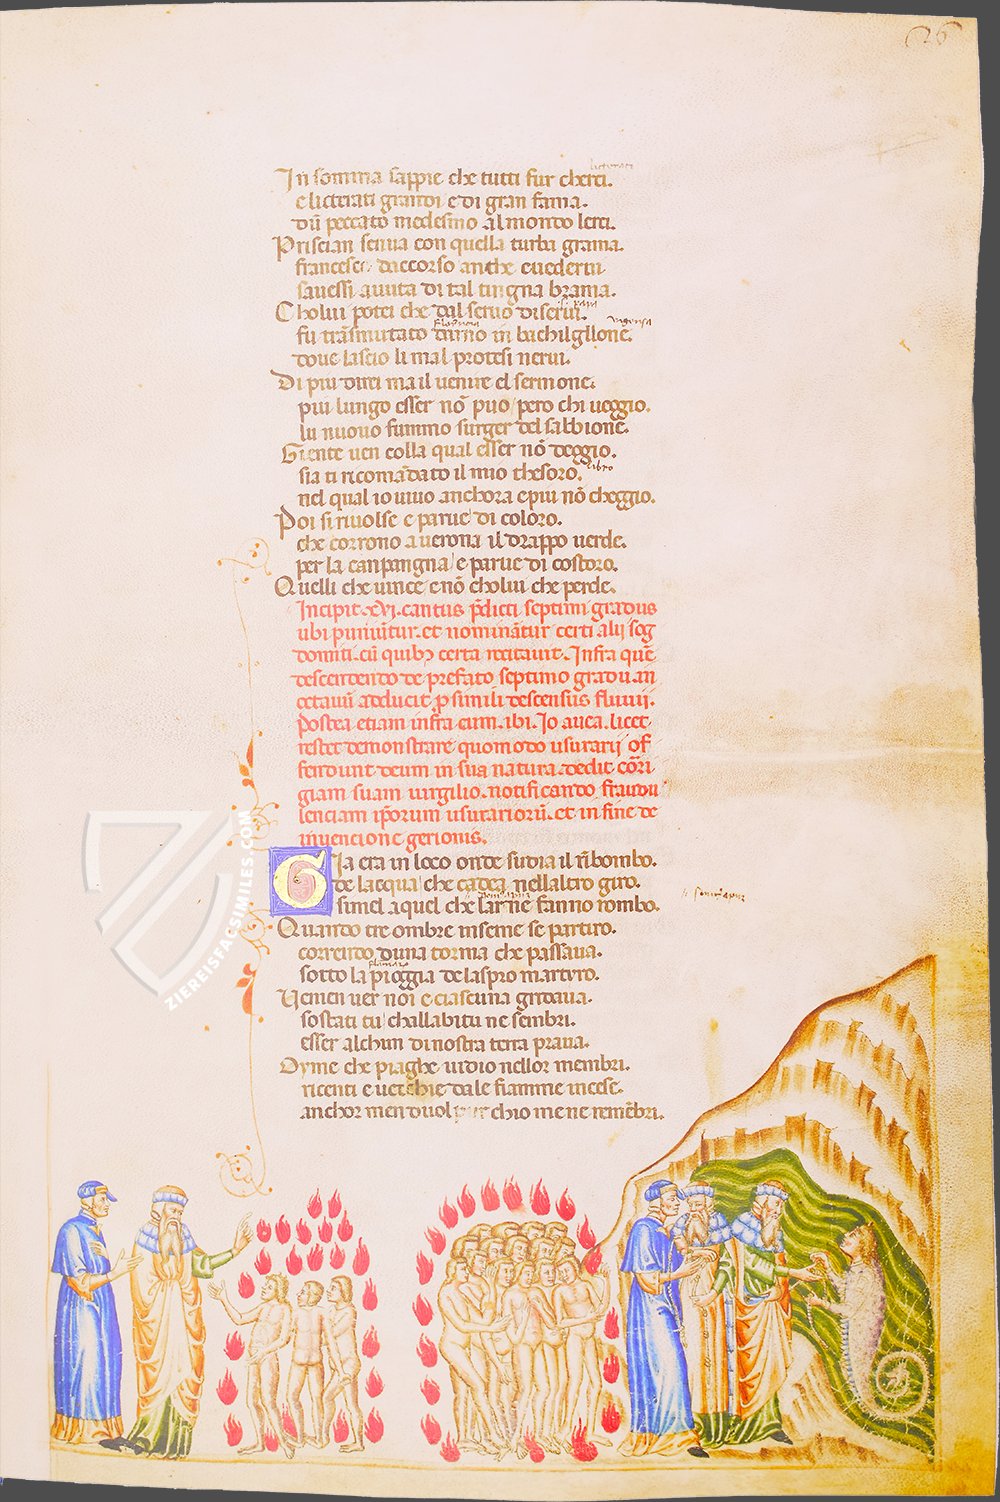 26
In somma sappie che tutti fur cherci.
e licterati grandi e di gran fama.
dũ peccato medesmo al mondo lerci.
Priscian senua con quella turba grama.
francesco daccorso anche euederui
sauessi auuta di tal tingna brama.
Cholui potei che dal seruo diserui.
fu trãsmutato darno in bachilgllone.
doue lascio li mal protesi nerui.
Di piu direi ma il uenire el sermone.
piu lungo esser nõ puo pero chi ueggio.
lu nuouo fummo surger del sabbione.
Giente uen colla qual esser nõ deggio.
libro
sia ti ricomãdato il mio thesoro.
nel qual io uiuo anchora e piu nõ cheggio.
Poi si riuolse e parue di coloro.
che corrono a uerona il drappo uerde.
per la canpangna e parue di costoro.
Quelli che uince e nõ cholui che perde.
Incipit. xvi. cantus p̃dicti septimi gradus
ubi puniũtur. et nominãtur certi alij sog
domiti. cũ quibꝫ certa recitauit. Infra quẽ
descendendo de prefato septimo gradu. in
octauũ adducit ꝓ simili descensus fluuij.
Postea etiam infra cum. ibi. Io auea. licet
restet demonstrare quomodo usurarij of
fendunt deum in sua natura. dedit cõrri
giam suam uirgilio. notificando fraudu
lenciam ip̃orum usurariorũ. et in fine de
inuencione gerionis.
Gia era in loco onde sudia il rĩbombo.
de lacqua che cadea nellaltro giro.
simel a quel che larnie fanno rombo.
Quando tre ombre inseme se partiro.
correndo duna torma che passaua.
sotto la pioggia de laspro martiro.
Uenien uer noi e ciascuna gridaua.
sostati tu challabitu ne sembri.
esser alchun di nostra terra praua.
Oyme che piaghe uidio nellor membri.
ricenti e uecchie da le fiamme incese.
anchor men duol pur chio me ne remẽbri.
ZIEREISFACSIMILES.COM